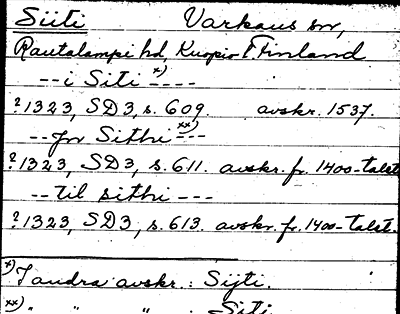 Siiti Varkaus sn,
Rautalampi hd, Kuopio l. Finland
--i Siti x) ----
?1323, SD3, s. 609. avskr. 1537.
--fr Sithi xx) --
?1323, SD3, s. 611. avskr. fr. 1400-talet
--til sithi ---
?1323, SD3, s. 613. avskr. fr. 1400-talet.
x) I andra avskr.: Sijti.
xx) " " " : Siti